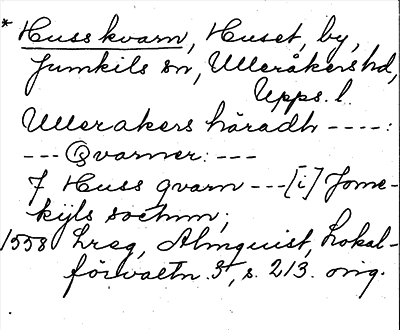 * Husskvarn, Huset, by,
Jumkils sn, Ulleråkers hd,
Upps. l.
Ullerakers häradh ----:
--- Qvarner: ---
J Huss qvarn --- [i] Jome-
kijls sochnn;
1558 Lreg, Almquist, Lokal-
förvaltn. 3, s. 213. orig.